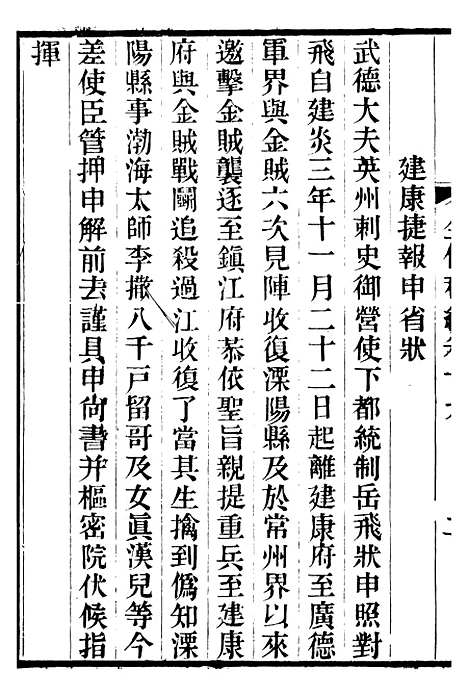 建康捷報申省狀
武德大夫英州刺史御營使下都統制岳飛狀申照對
飛自建炎三年十一月二十二日起離建康府至廣德
軍界與金賊六次見陣收復溧陽縣及於常州界以來
邀擊金賊襲逐至鎭江府恭依聖旨親提重兵至建康
府與金賊戰鬭追殺過江收復了當其生擒到僞知溧
陽縣事渤海太師李撒八千戸留哥及女眞漢兒等今
差使臣管押申解前去謹具申尙書幷樞密院伏候指
揮